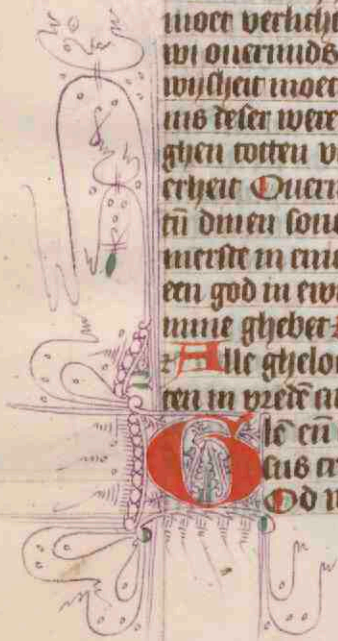 moet verlicht
wi ouermids
wijsheit moet
nis deser were
ghen totten v
erheit Ouerm
tū dinen sone
mette in
een god in ewi
mine ghebet
Alle ghelo
ten in vredē
lē eñ
sus cr
God